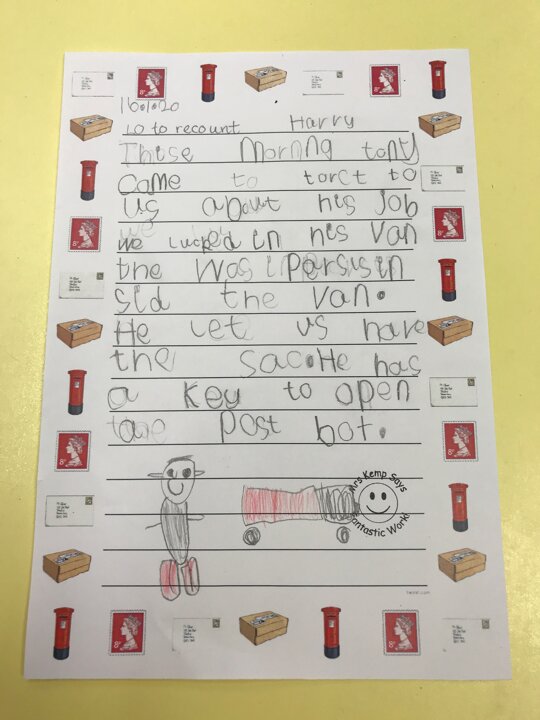 16.1.20
LO to recount Harry
Those Morning tony
came to torct to
us about his job
we lucked in his van
the was in Parsis in
sid the van.
He let us have
the sac. He has
a key to open
the post bot.
Mrs Kemp Says
Fantastic Work
twinkl.com